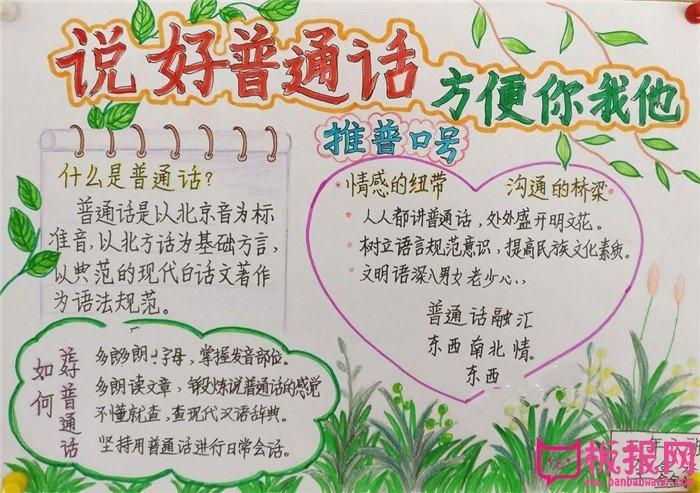 说好普通话
方便你我他
推普口号
什么是普通话?
普通话是以北京音为标
准音,以北方话为基础方言,
以典范的现代白话文著作
为语法规范。
·情感的纽带 沟通的桥梁·
·人人都讲普通话,处处盛开明文花。
·树立语言规范意识,提高民族文化素质。
·文明语深入男女老少心、、
普通话融汇
东西南北情。
东西
如何
好普通话
多朗 字母,掌握发音部位。
多朗读文章,锻炼说普通话的感觉
不懂就查,查现代汉语辞典。
坚持用普通话进行日常会话。
板报网
www.banbaowang.com